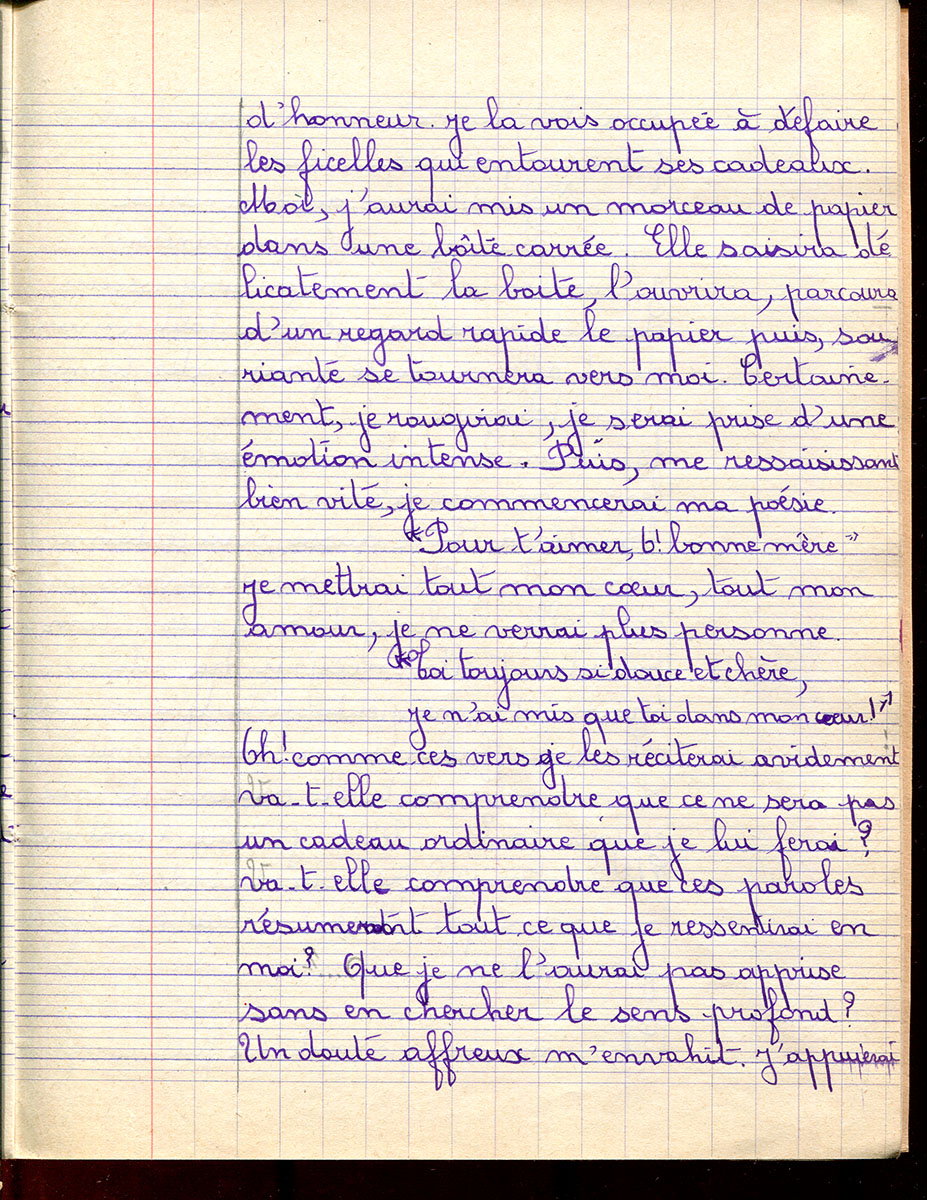 d'honneur. Je la vois occupée à défaire
les ficelles qui entourent ses cadeaux.
Moi, j'aurai mis un morceau de papier
dans une boîte carrée. Elle saisira dé
licatement la boite, l'ouvrira, parcoura
d'un regard rapide le papier puis, sou
riante se tournera vers moi. Certaine-
ment, je rougirai, je serai prise d'une
émotion intense. Puis, me ressaisissant
bien vite, je commencerai ma poésie.
"Pour t'aimer, O! bonne mère"
Je mettrai tout mon cœur, tout mon
amour, je ne verrai plus personne.
"Toi toujours si douce et chère,
Je n'ai mis que toi dans mon cœur!"
Oh! comme ces vers je les réciterai avidement
Va-t-elle comprendre que ce ne sera pas
un cadeau ordinaire que je lui ferai?
Va-t-elle comprendre que ces paroles
tout ce que je ressentirai en
moi? Que je ne l'aurai pas apprise
sans en chercher le sens profond?
Un doute affreux m'envahit. J'appuierai